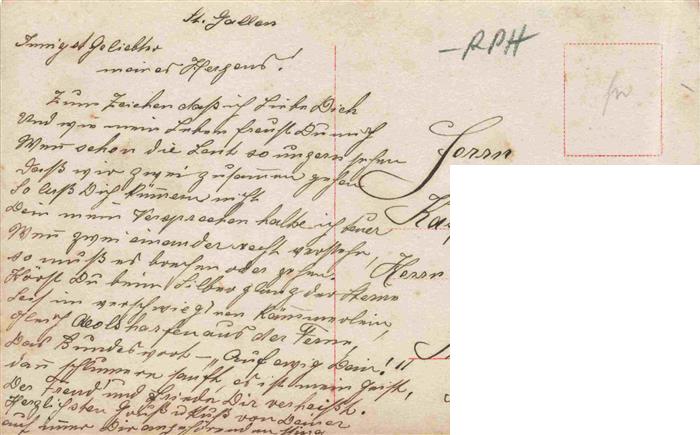 St. Gallen
Innigst Geliebter
meines Herzens!
Zum Zeichen daß ich Liebe Dich
Und wie mein Leben freust Du mich
Wenn schon die Leut so ungern sehen
Daß wir zwei zusammen gehen
So laß Dich kümmern nicht
Dein mein Versprechen halte ich teuer
Wenn zwei einander recht verstehn,
so muß es brechen oder gehen.
Hörst Du beim Silberglanz der Sterne
Dich im verschwieg'nen Kämmerlein,
gleich Aeolsharfen aus der Ferne,
Das Bundeswort - "Auf ewig Dein!"
dann schlummre sanft, es ist mein Geist,
Der Freud' und Friede Dir verheißt.
Herzlichsten Gruß u Kuß von Deiner
auf immer Dir angehörenden
-RPH
Herrn
Herrn